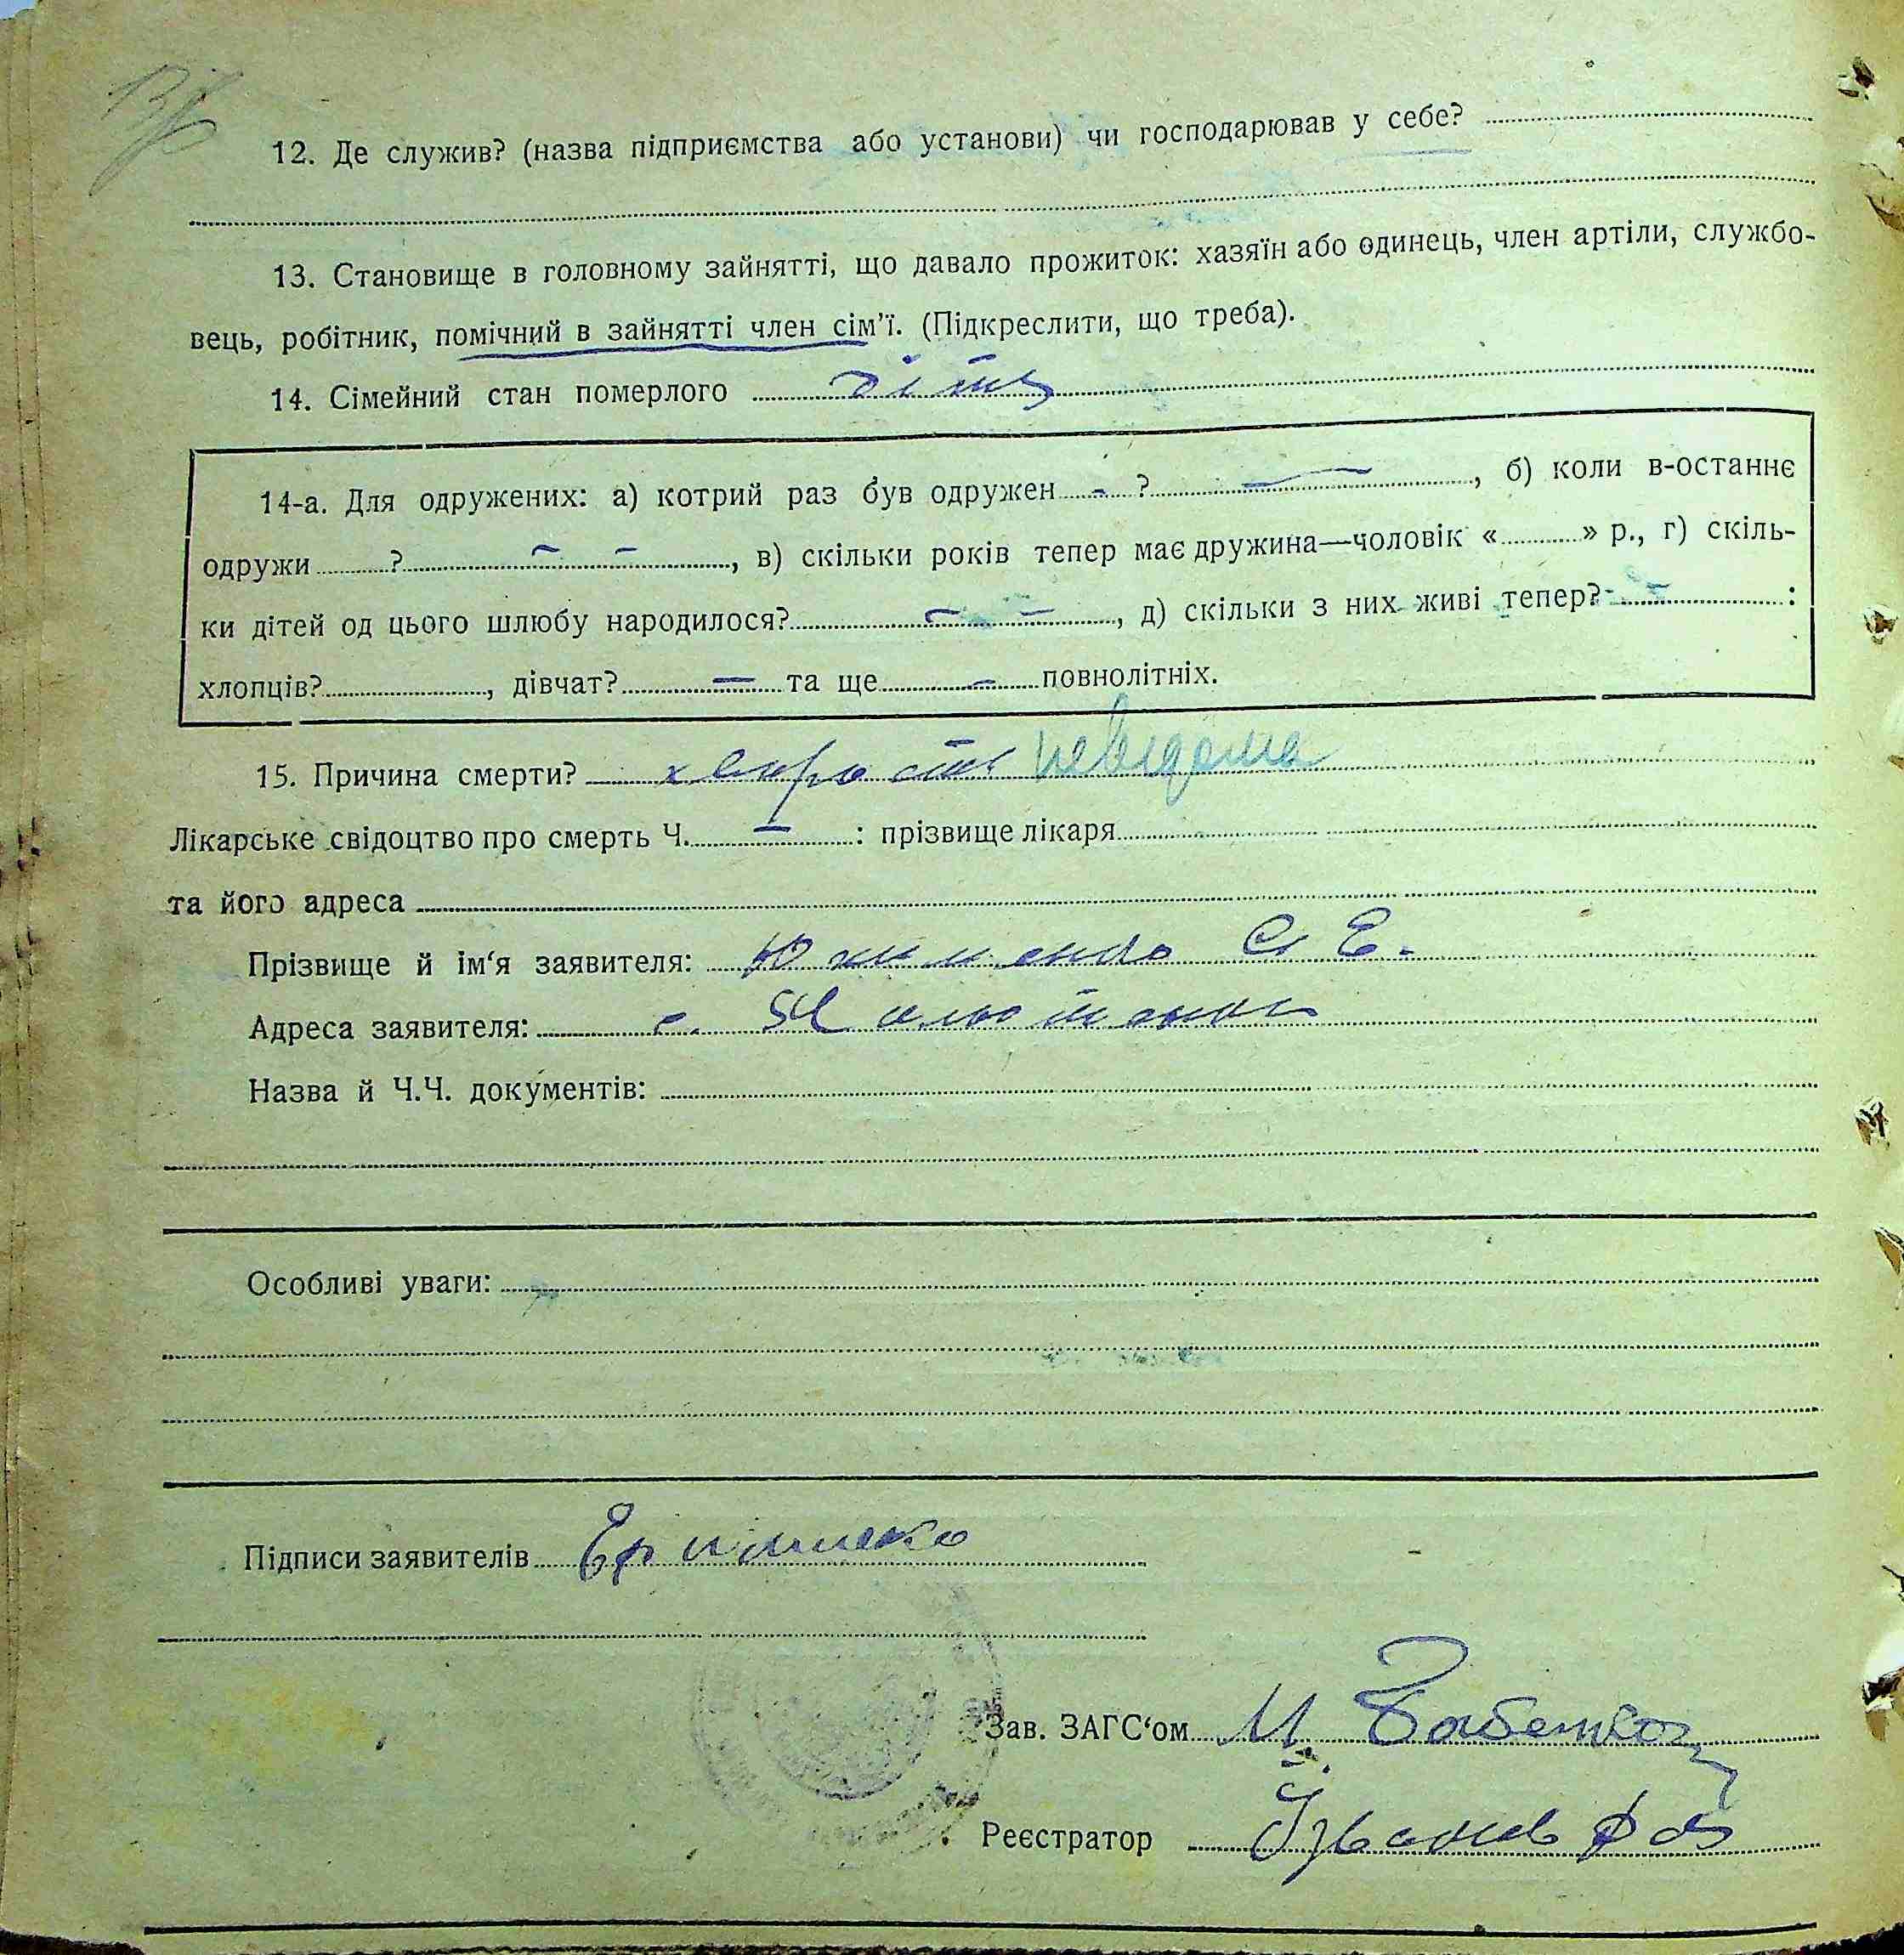 12. Де служив? (назва підприємства або установи) чи господарював у себе?
13. Становище в головному зайнятті, що давало прожиток: хазяїн або одинець, член артіли, службо-
вець, робітник, помічний в зайнятті член сім'ї. (Підкреслити, що треба).
14. Сімейний стан померлого
14-а. Для одружених: а) котрий раз був одружен — ? —, б) коли в-останнє
одружи ? — —, в) скільки років тепер має дружина—чоловік «» р., г) скіль-
ки дітей од цього шлюбу народилося? — —, д) скільки з них живі тепер? — :
хлопців?, дівчат? — та ще — повнолітніх.
15. Причина смерти? невідома
Лікарське свідоцтво про смерть Ч. — : прізвище лікаря
та його адреса
Прізвище й ім'я заявителя: Юхименко Є.
Адреса заявителя: с.
Назва й Ч.Ч. документів:
Особливі уваги:
Підписи заявителів
Зав. ЗАГС'ом М.
Реєстратор